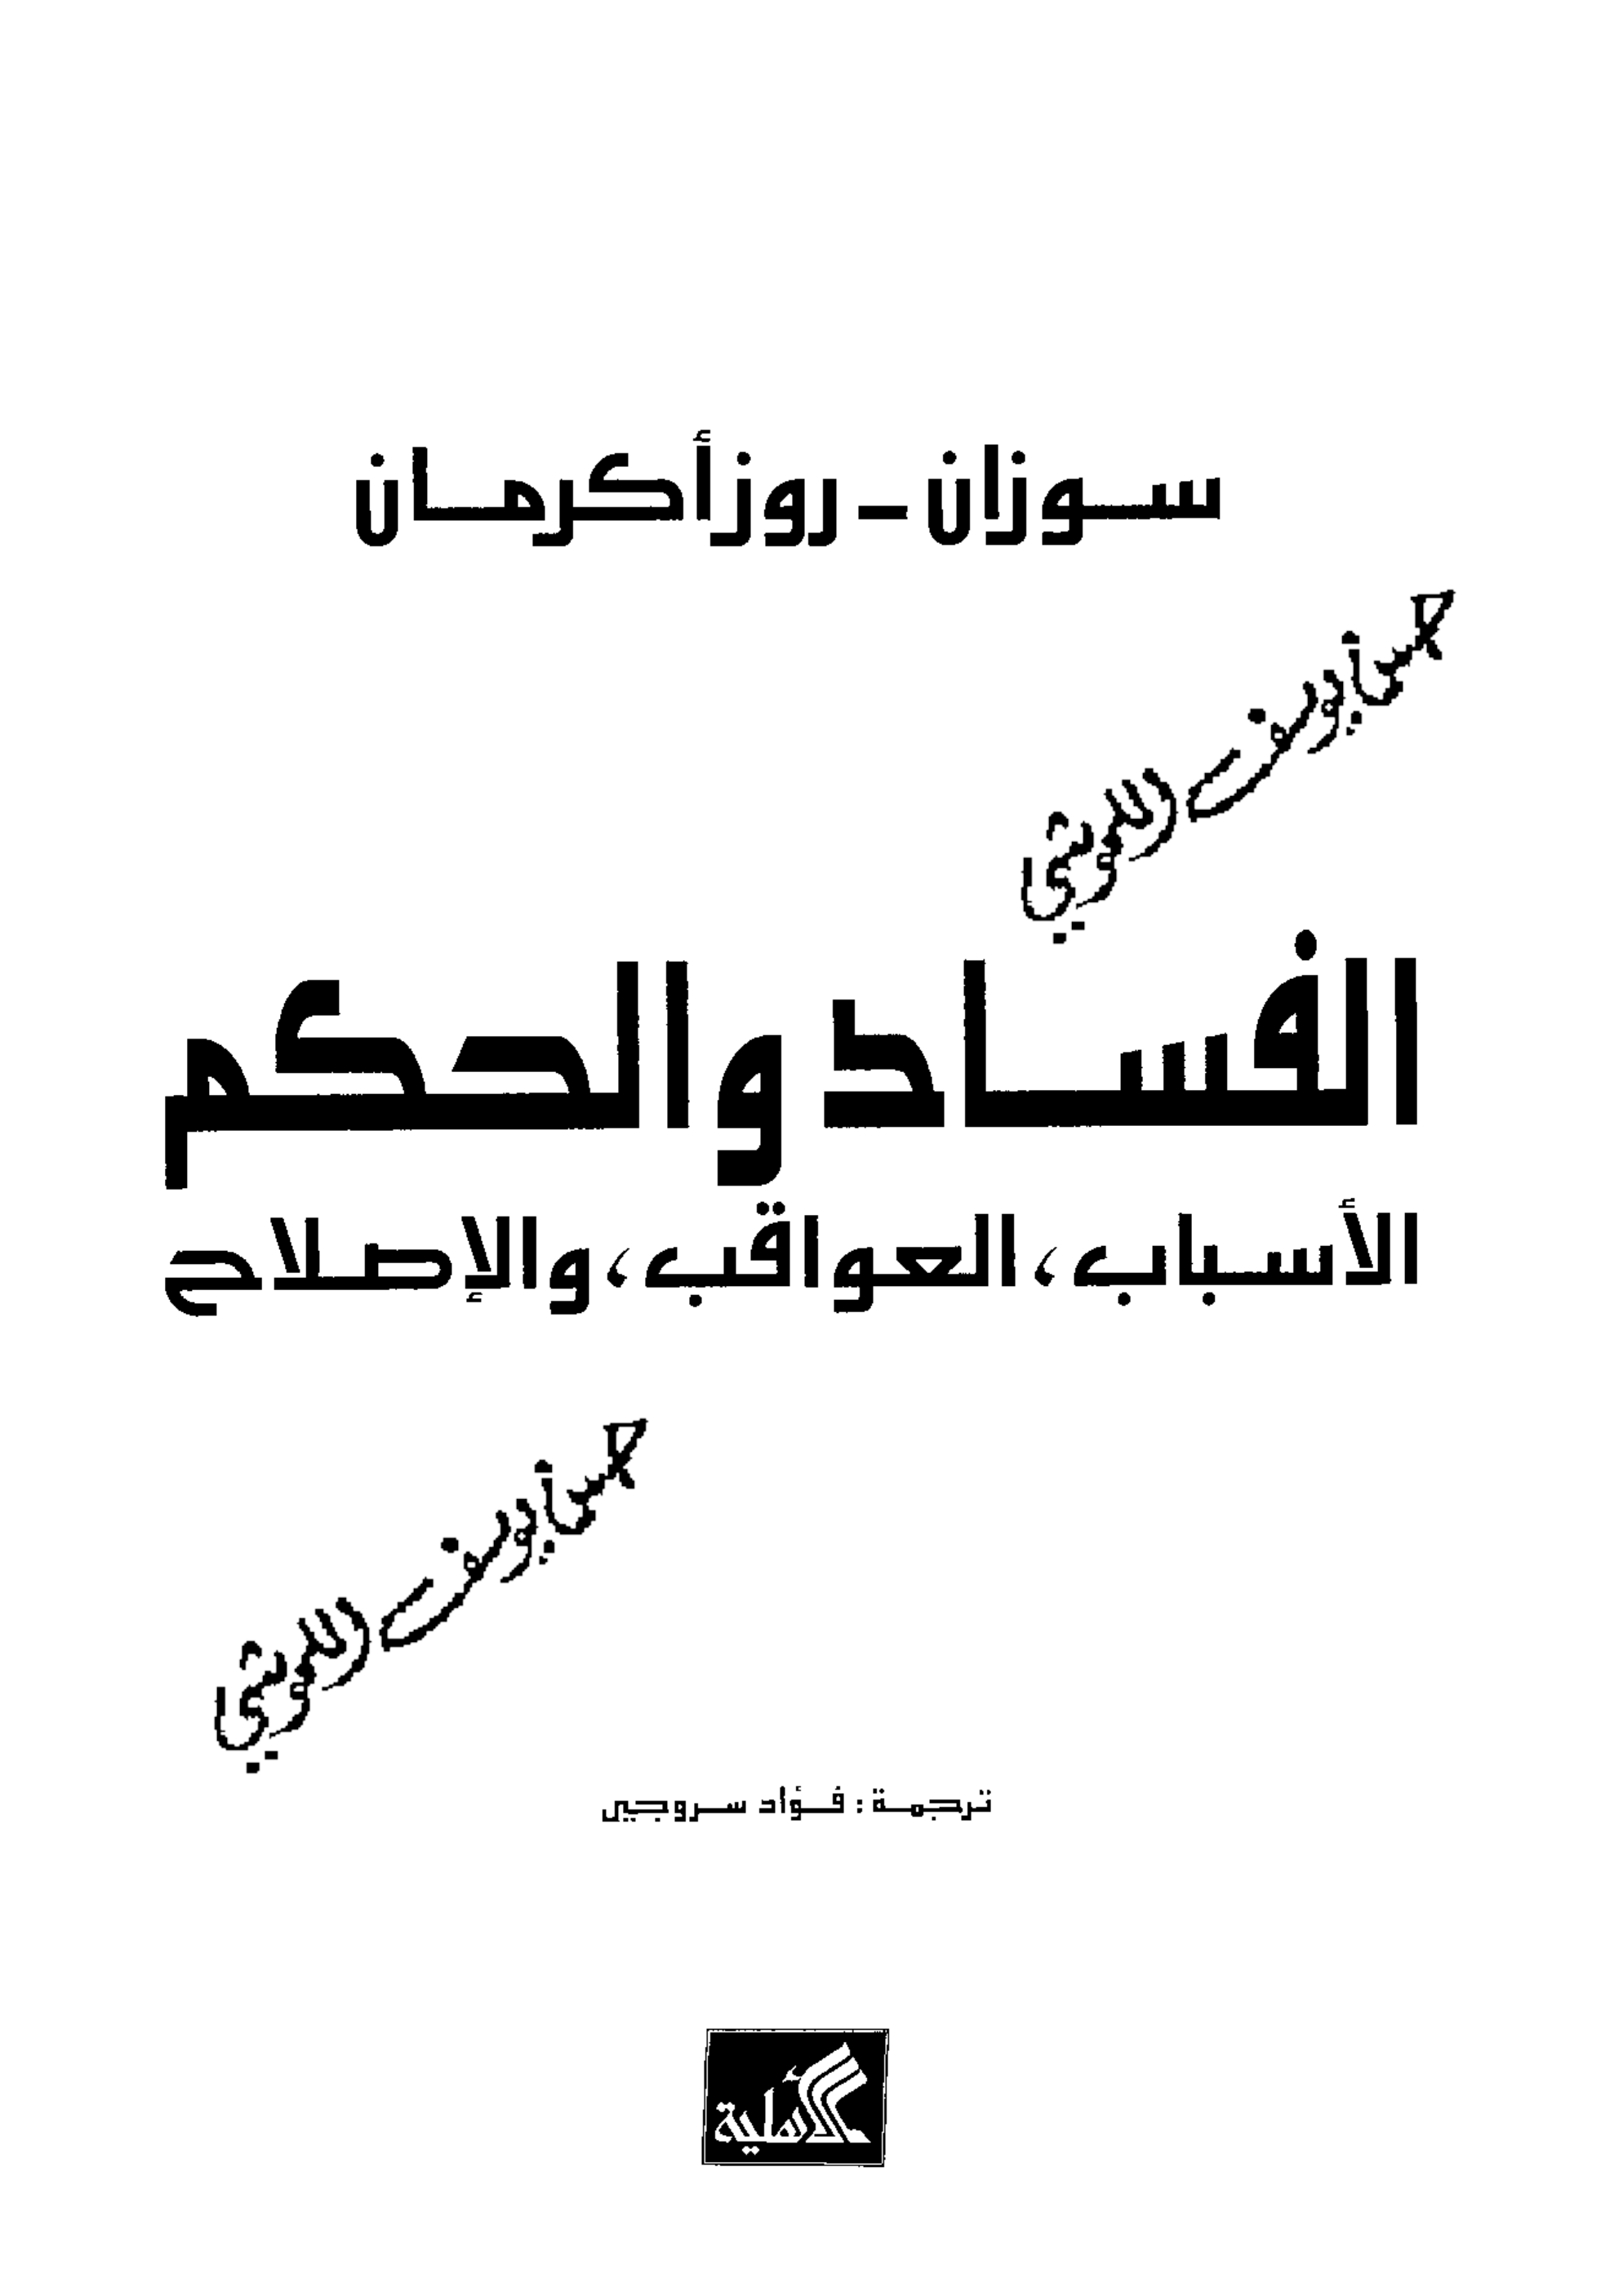 سوزان - روز أكرمان
الفساد والحكم
الأسباب، العواقب، والإصلاح
ترجمة: فؤاد سروجي
الأهلية